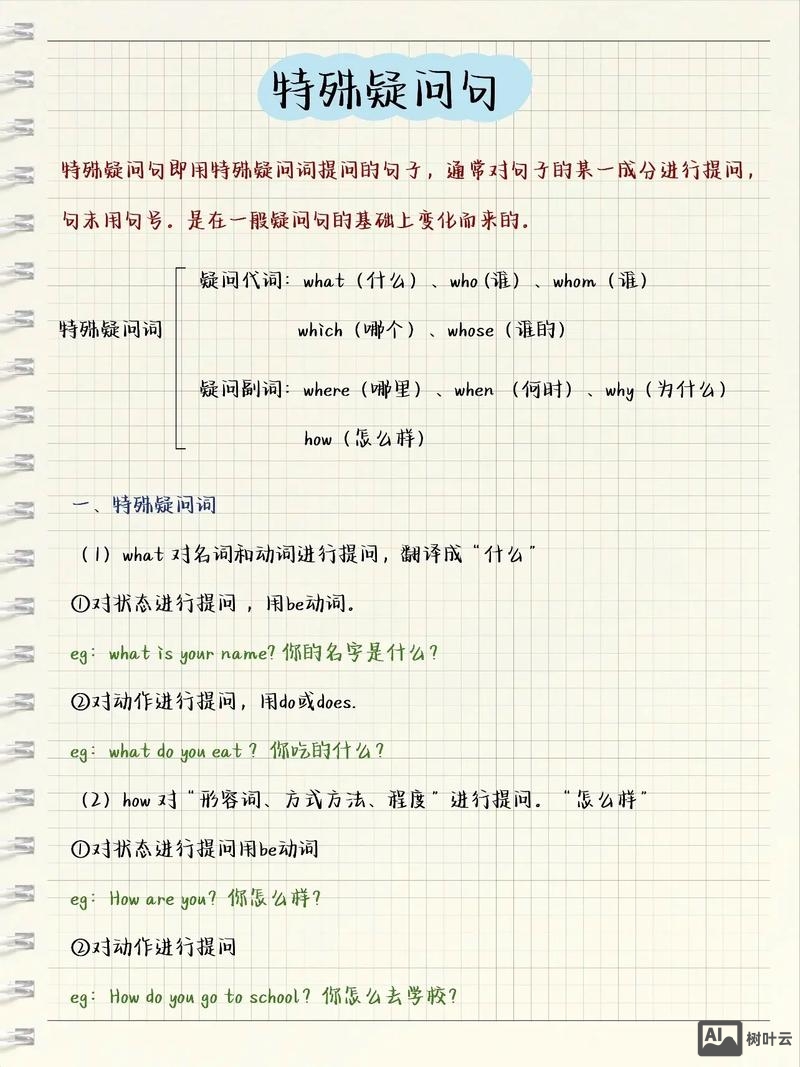 特殊疑问句
特殊疑问句即用特殊疑问词提问的句子，通常对句子的某一成分进行提问，
句末用句号。是在一般疑问句的基础上变化而来的。
疑问代词：what（什么）、who（谁）、whom（谁）
特殊疑问词
which（哪个）、whose（谁的）
疑问副词：where（哪里）、when （何时）、why（为什么）
how（怎么样）
一、特殊疑问词
（1）what 对名词和动词进行提问，翻译成“什么”
①对状态进行提问 ，用be动词。
eg：what is your name? 你的名字是什么？
②对动作进行提问，用do或does.
eg：what do you eat ？你吃的什么？
（2）how 对“形容词、方式方法、程度”进行提问。“怎么样”
①对状态进行提问用be动词
eg：How are you？你怎么样？
②对动作进行提问
eg：How do you go to school？你怎么去学校？
AI 树叶云